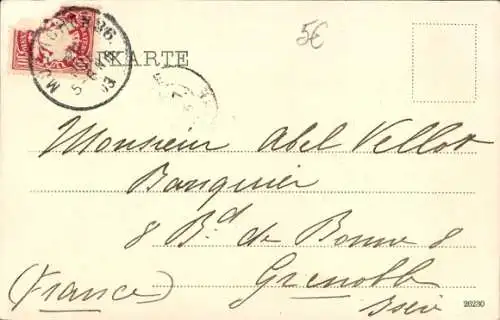 5€
TKARTE
Monsieur Abel Vellot
Banquier
8 Bd de Bonne 8
Grenoble
(France)
Isère
26230